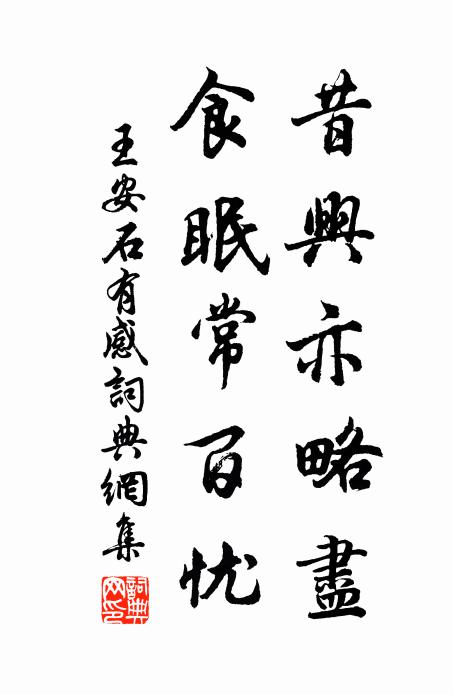 昔興亦略盡
食眠常百忧
王安石有感詞典網集
詞典網印